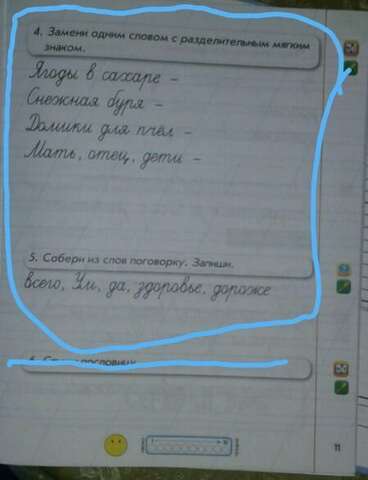 4. Замени одним словом с разделительным мягким
знаком.
Ягоды в сахаре –
Снежная буря –
Домики для пчёл –
Мать, отец, дети –
5. Собери из слов поговорку. Запиши.
всего, Ум, да, здоровье, дороже
11